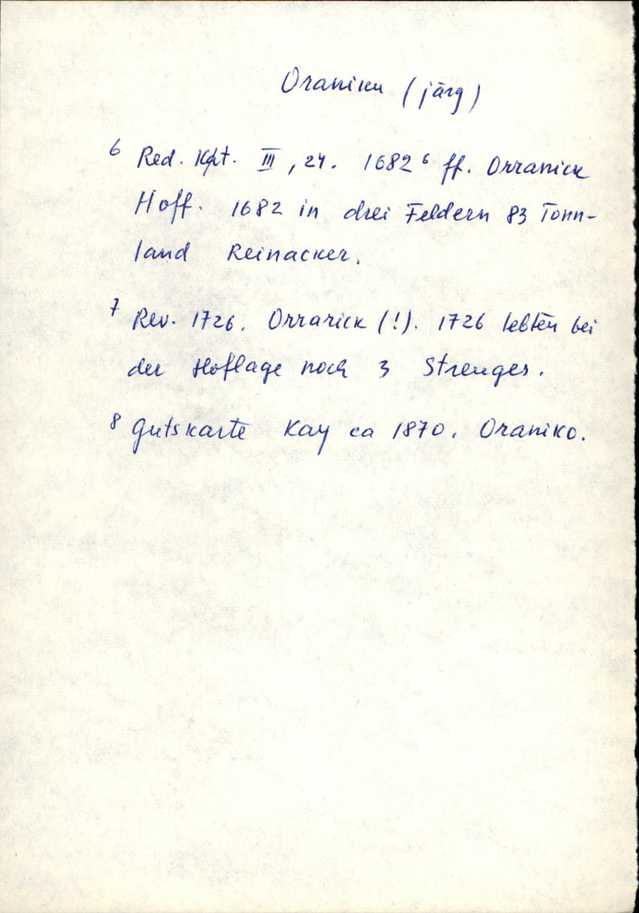 Oraniku (järg)
6 Red. Kpt. III, 24. 1682 6 ff. Orranick
Hoff. 1682 in drei Feldern 83 Tonn-
land Reinacker.
7 Rev. 1726. Orrarick (!). 1726 lebten bei
der Hoflage noch 3 Streuges.
8 Gutskarte Kay ca 1870. Oraniko.